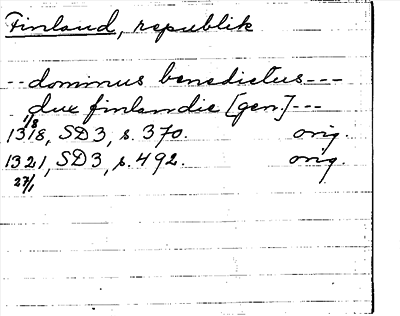 Finland, republik
-- dominus benedictus ---
dux finlandie [gen.] ---
1/8
1318, SD3, s. 370. orig.
1321, SD3, s. 492. orig.
27/1